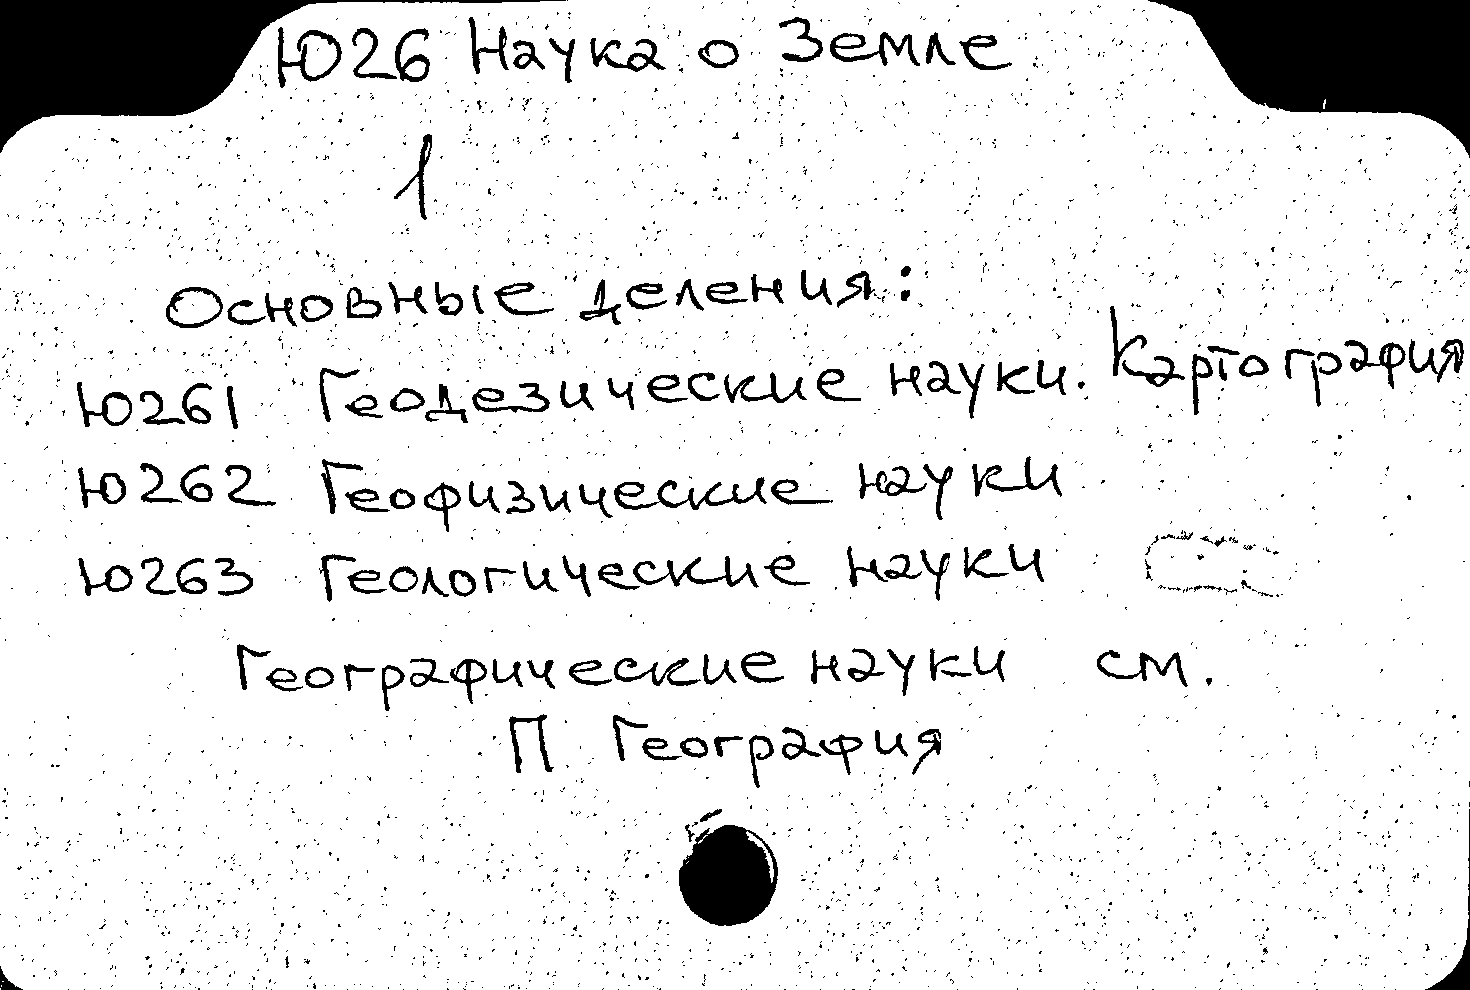 Ю26 Наука о Земле
1
Основные деления:
Ю261 Геодезические науки. Картография
Ю262 Геофизические науки
Ю263 Геологические науки
Географические науки см.
П География